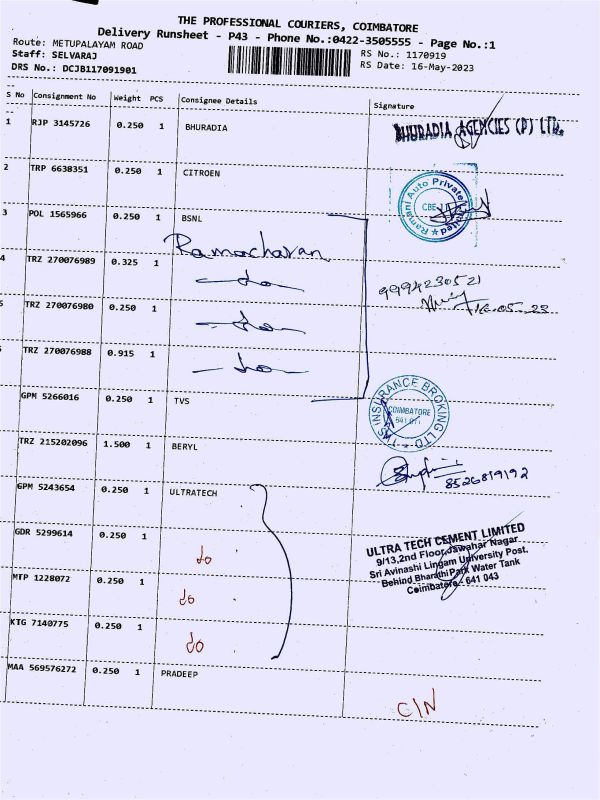 THE PROFESSIONAL COURIERS, COIMBATORE
Delivery Runsheet - P43 - Phone No.:0422-3505555 - Page No.:1
Route: METUPALAYAM ROAD RS No.: 1170919
Staff: SELVARAJ RS Date: 16-May-2023
DRS No.: DCJB117091901
S No Consignment No Weight PCS Consignee Details Signature
1 RJP 3145726 0.250 1 BHURADIA
BHURADIA AGENCIES (P) LTD.
2 TRP 6638351 0.250 1 CITROEN
Ramani Auto Private Limited ★
CBE
3 POL 1565966 0.250 1 BSNL
Ramacharan
4 TRZ 270076989 0.325 1 - do -
9994230521
16-05-23
TRZ 270076980 0.250 1 - do -
TRZ 270076988 0.915 1 - do -
GPM 5266016 0.250 1 TVS
TVS INSURANCE BROKING LTD ★
COIMBATORE
641 011
TRZ 215202096 1.500 1 BERYL
8526819192
GPM 5243654 0.250 1 ULTRATECH
GDR 5299614 0.250 1 do
ULTRA TECH CEMENT LIMITED
9/13,2nd Floor,Jawahar Nagar
Sri Avinashi Lingam University Post.
Behind Bharathi Park Water Tank
Coimbatore - 641 043
MTP 1228072 0.250 1 do
KTG 7140775 0.250 1 do
MAA 569576272 0.250 1 PRADEEP
C/N